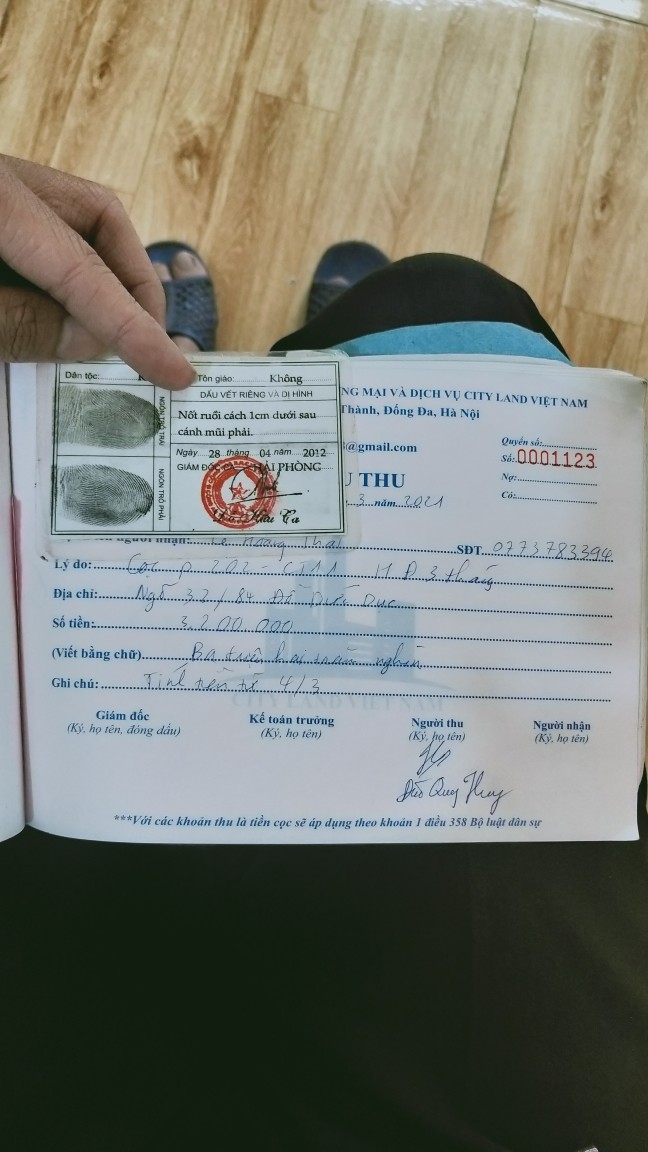 Dân tộc: K Tôn giáo: Không
DẤU VẾT RIÊNG VÀ DỊ HÌNH
Nốt ruồi cách 1cm dưới sau
cánh mũi phải.
NGÓN TRỎ TRÁI
NGÓN TRỎ PHẢI
Ngày 28 tháng 04 năm 2012
GIÁM ĐỐC CA HẢI PHÒNG
NG MẠI VÀ DỊCH VỤ CITY LAND VIỆT NAM
Thành, Đống Đa, Hà Nội
@gmail.com
Quyển số:
Số: 0001123
Nợ:
Có:
U THU
3 năm 2021
người nhận: Lê Hoàng Thái
SĐT 0773783394
Lý do: Cọc p 202 - HĐ 3 tháng
Địa chỉ: Ngõ 32/84
Số tiền: 3.200.000
(Viết bằng chữ) Ba triệu hai trăm nghìn
Ghi chú: Tính tiền từ 4/3
CITY LAND VIỆT NAM
Giám đốc Kế toán trưởng Người thu Người nhận
(Ký, họ tên, đóng dấu) (Ký, họ tên) (Ký, họ tên) (Ký, họ tên)
Quy
***Với các khoản thu là tiền cọc sẽ áp dụng theo khoản 1 điều 358 Bộ luật dân sự